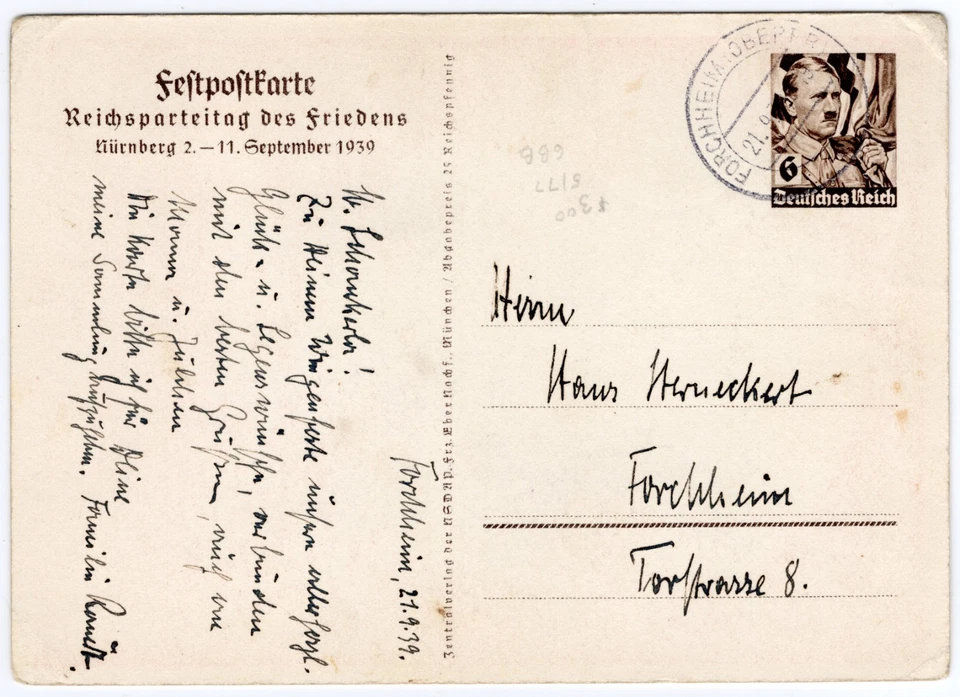 Festpostkarte
Reichsparteitag des Friedens
Nürnberg 2.–11. September 1939
FORCHHEIM (OBERFR
21.9.
6
Deutsches Reich
Zentralverlag der NSDAP. Frz. Eher Nachf., München / Abgabepreis 25 Reichspfennig
Forchheim, 21.9.39.
Zu Deinem Wiegenfeste unsere allerherzl.
Glück- u. Segenswünsche, verbunden
mit den besten Grüßen, auch an
Mama u.
Die Karte bitte ich für Deine
meine Sammlung aufzuheben. Familie
Herrn
Hans Sterneckert
Forchheim
Torstrasse 8.
$300
5/77